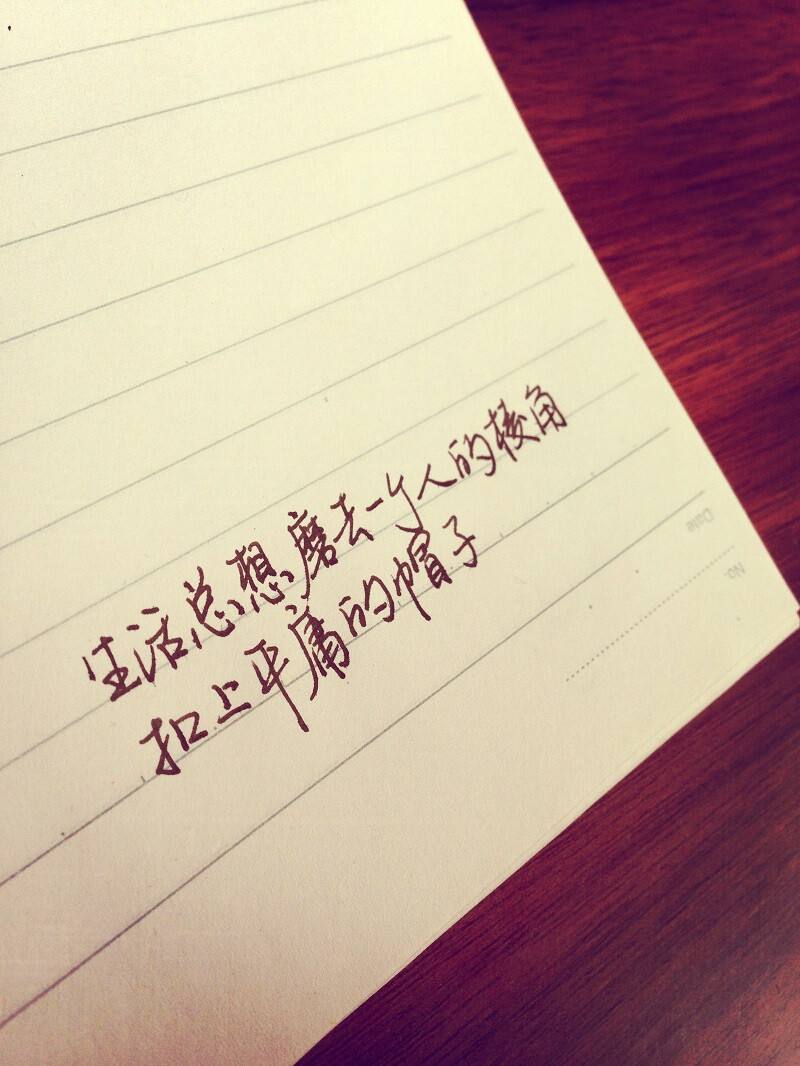 生活总想磨去一个人的棱角
扣上平庸的帽子
Date
No.